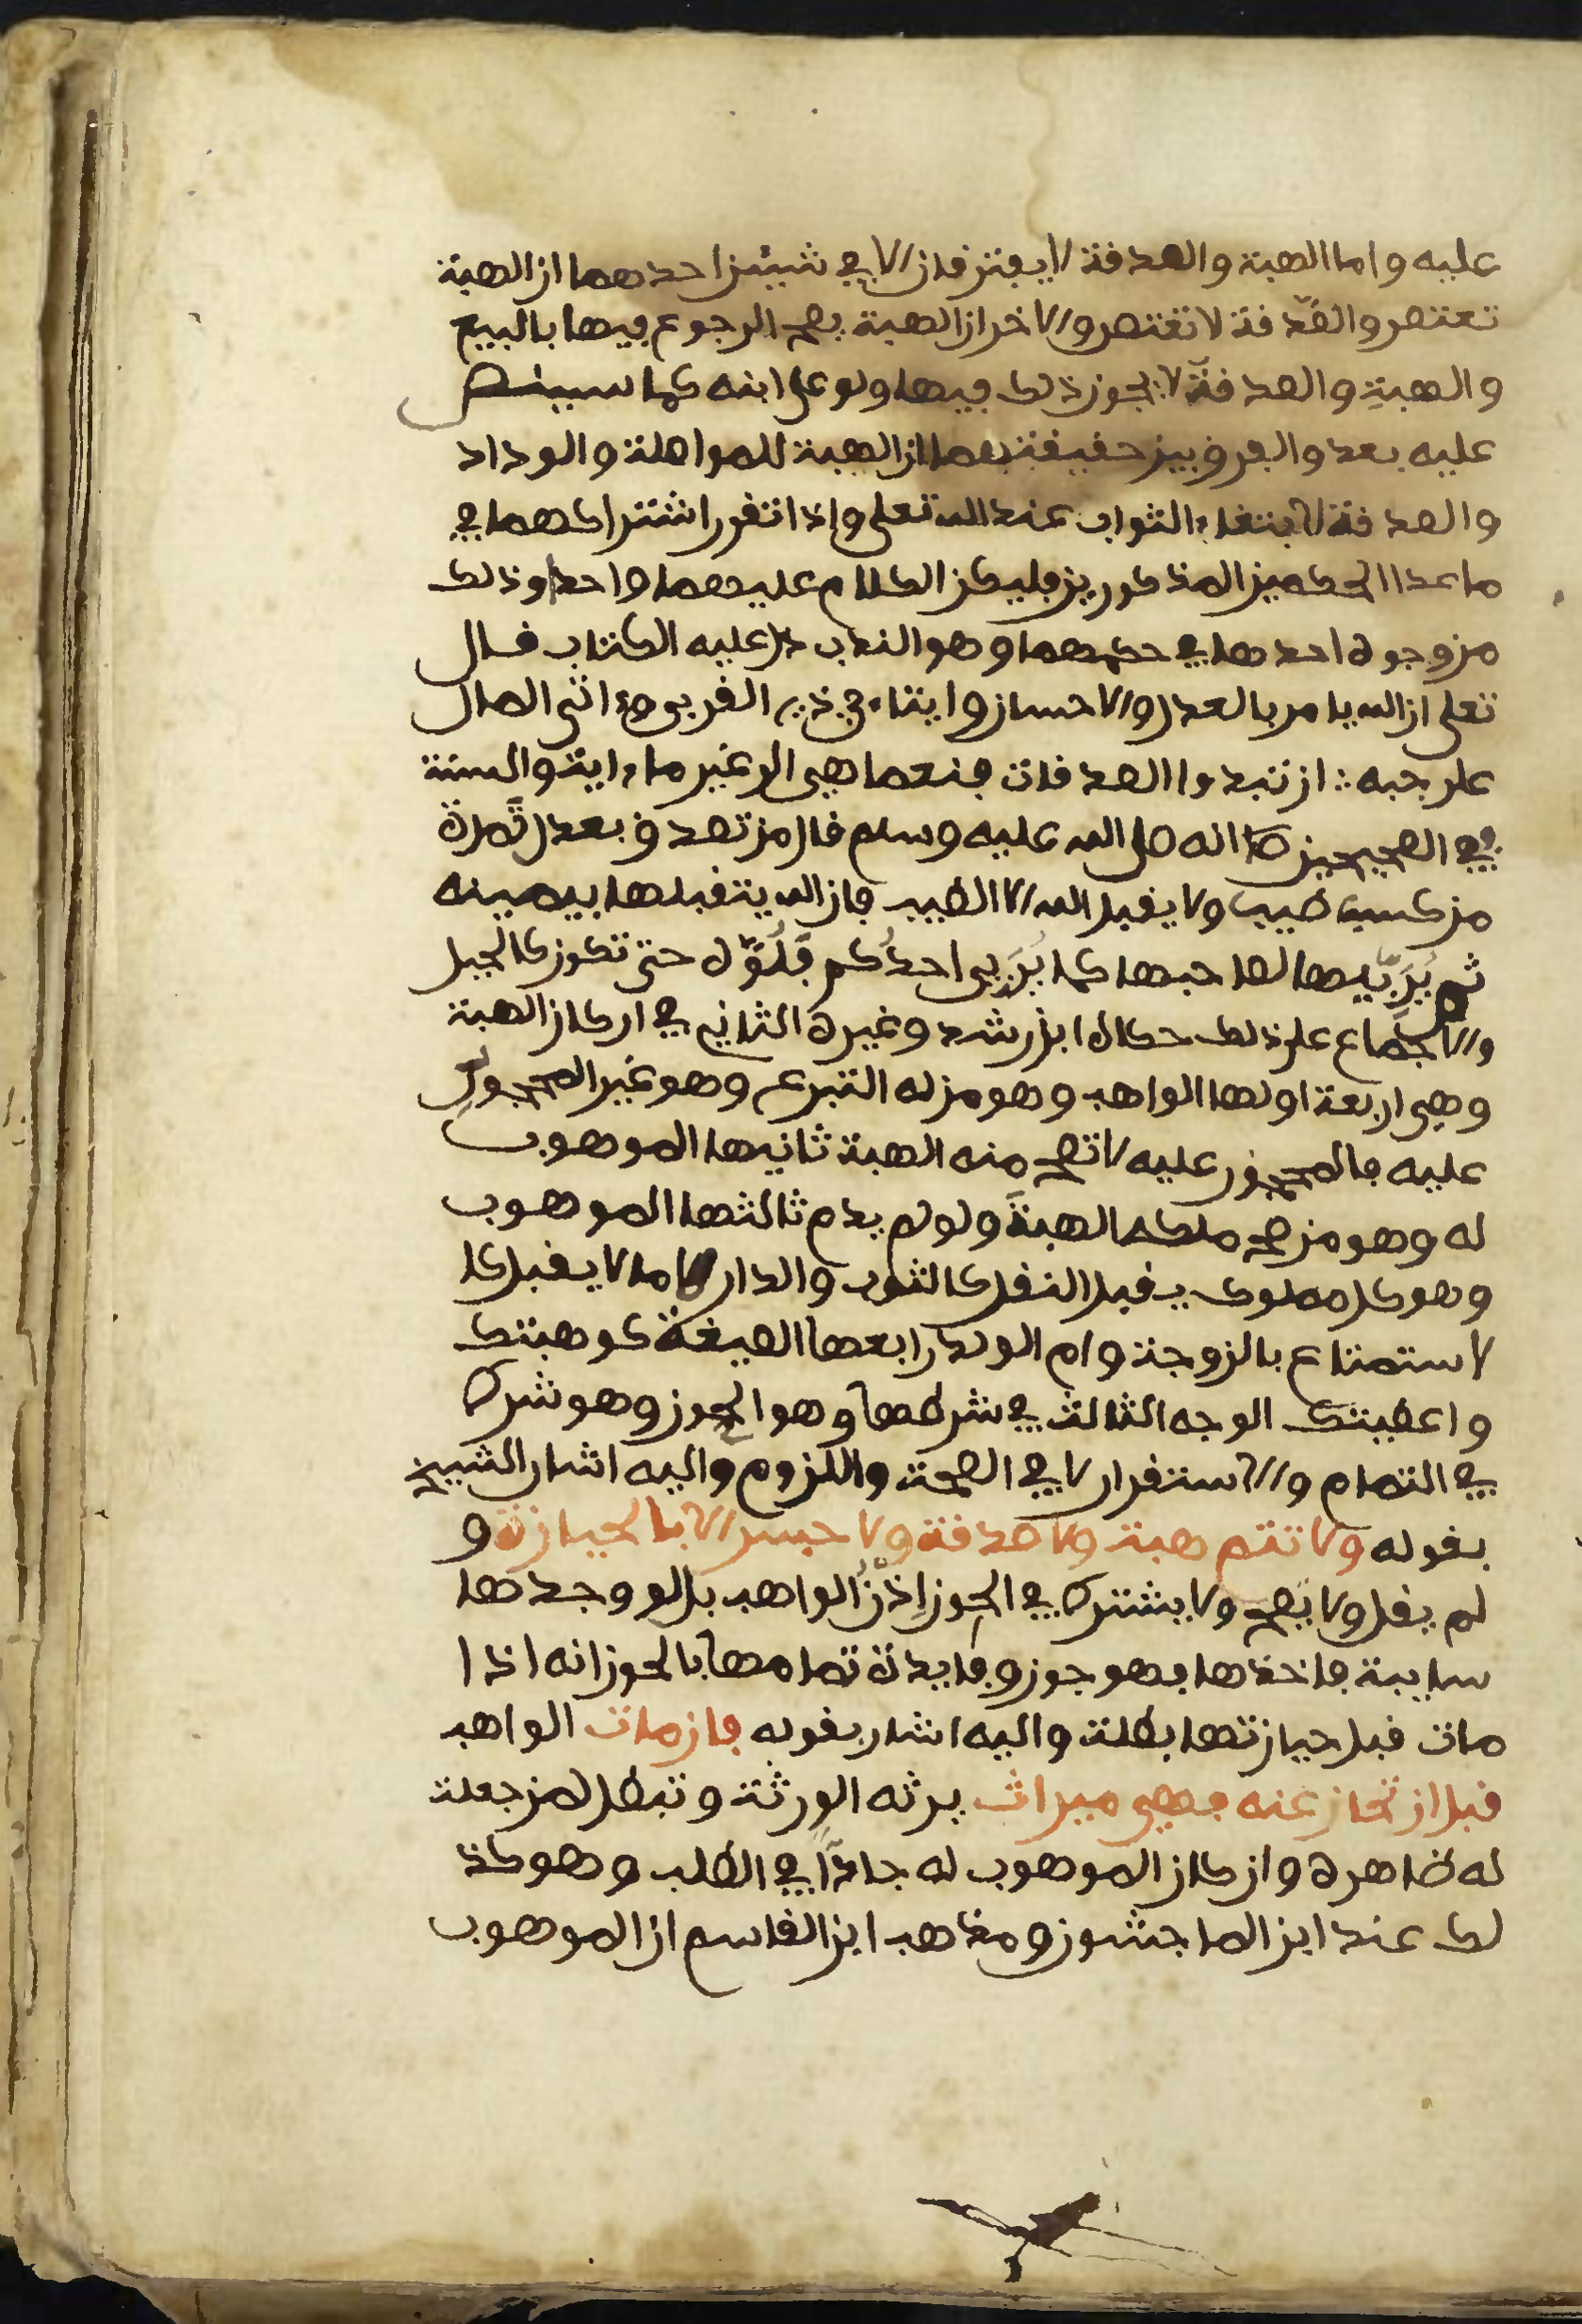 عليه واما الهبة والصدقة لا يفترقان الا في شيئين احدهما ان الهبة
تعتصر والصدقة لا تعتصر والاخر ان الهبة يصح الرجوع فيها بالبيع
والهبة والصدقة لا يجوز ذلك فيها ولو على ابنه كما سينص
عليه بعد والفرق بين حقيقتهما ان الهبة للمواصلة والوداد
والصدقة لابتغاء الثواب عند الله تعلى واذا تقرر اشتراكهما في
ما عدا الحكمين المذكورين فليكن الكلام عليهما واحدا وذلك
من وجوه احدها في حكمهما وهو الندب دل عليه الكتاب قال
تعلى ان الله يامر بالعدل والاحسان وايتاء ذي القربى وءاتى المال
على حبه ان تبدوا الصدقات فنعما هي الى غير ما ءاية والسنة
في الصحيحين انه صلى الله عليه وسلم قال من تصدق بعدل تَمرة
من كسب طيب ولا يقبل الله الا الطيب فان الله يتقبلها بيمينه
ثم يُرَبِّيها لصاحبها كما يُرَبى احدُكم فَلُوَّه حتى تكون كالجبل
والاجماع على ذلك حكاه ابن رشد وغيره الثاني في اركان الهبة
وهي اربعة اولها الواهب وهو من له التبرع وهو غير المحجور
عليه فالمحجور عليه لا تصح منه الهبة ثانيها الموهوب
له وهو من صح ملكه الهبةَ ولو لم يدم ثالثها الموهوب
وهو كل مملوك يقبل النقل كالثوب والدار لا ما لا يقبل كا
لاستمتاع بالزوجة وام الولد رابعها الصيغة كوهبتك
واعطيتك الوجه الثالث في شرطها وهو الحوز وهو شرط
في التمام والاستقرار لا في الصحة واللزوم واليه اشار الشيخ
بقوله ولا تتم هبة ولا صدقة ولا حبس الا بالحيازة و
لم يقل ولا تصح ولا يشترط في الحوز اِذْنُ الواهب بل لو وجدها
سايبة فاخذها فهو حوز وفايدة تمامها بالحوز انه اذا
مات قبل حيازتها بطلت واليه اشار بقوله فان مات الواهب
قبل ان تحاز عنه فهي ميراث يرثه الورثة وتبطل لمن جعلت
له ظاهره وان كان الموهوب له جادًّا في الطلب وهو كذ
لك عند ابن الماجشون ومذهب ابن القاسم ان الموهوب